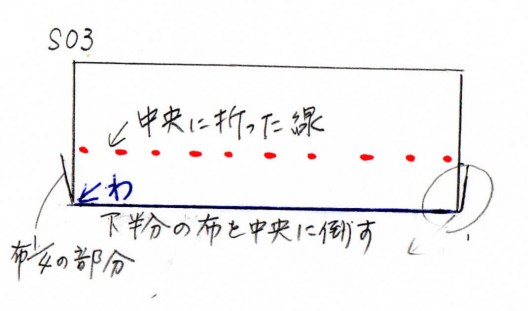 S03
中央に折った線
わ
下半分の布を中央に倒す
布1/4の部分